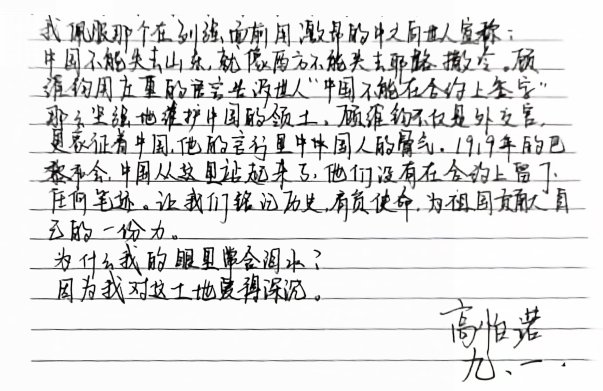 我佩服那个在列强面前用激昂的中文向世人宣称：
中国不能失去山东，就像西方不能失去耶路撒冷。顾
维钧用庄重的宣言告诉世人“中国不能在合约上签字”
那么坚强地维护中国的领土。顾维钧不仅是外交官，
更象征着中国，他的言行里中国人的骨气。1919年的巴
黎和会，中国从这里站起来了，他们没有在合约上留下
任何笔迹。让我们铭记历史，肩负使命，为祖国贡献自
己的一份力。
为什么我的眼里常含泪水？
因为我对这土地爱得深沉。
高怡诺
九、一、